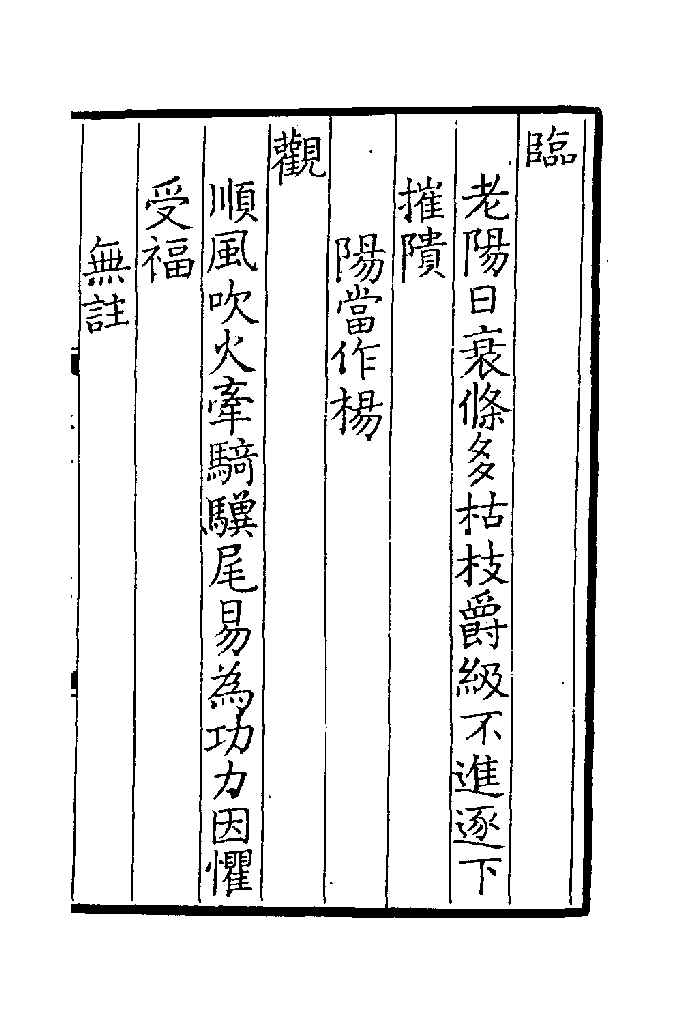 臨
老陽日衰條多枯枝爵級不進逐下
摧隤
陽當作楊
觀
順風吹火牽騎驥尾易為功力因懼
受福
無註